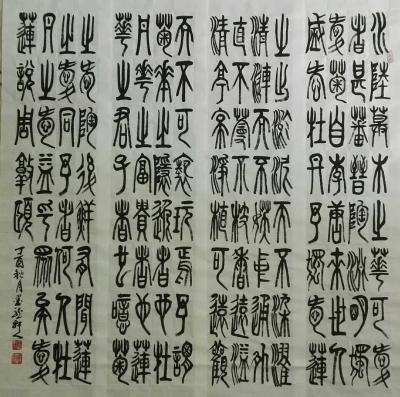 水陸草木之華可愛
者甚蕃晉陶淵明獨
愛菊自李唐來世人
盛愛牡丹予獨愛蓮
之出淤泥而不染濯
清漣而不妖中通外
直不蔓不枝香遠益
清亭亭淨植可遠觀
而不可褻玩焉予謂
菊華之隱逸者也牡
丹華之富貴者也蓮
華之君子者也噫菊
之愛陶後鮮有聞蓮
之愛同予者何人牡
丹之愛益乎眾矣愛
蓮說周敦頤
丁酉秋月